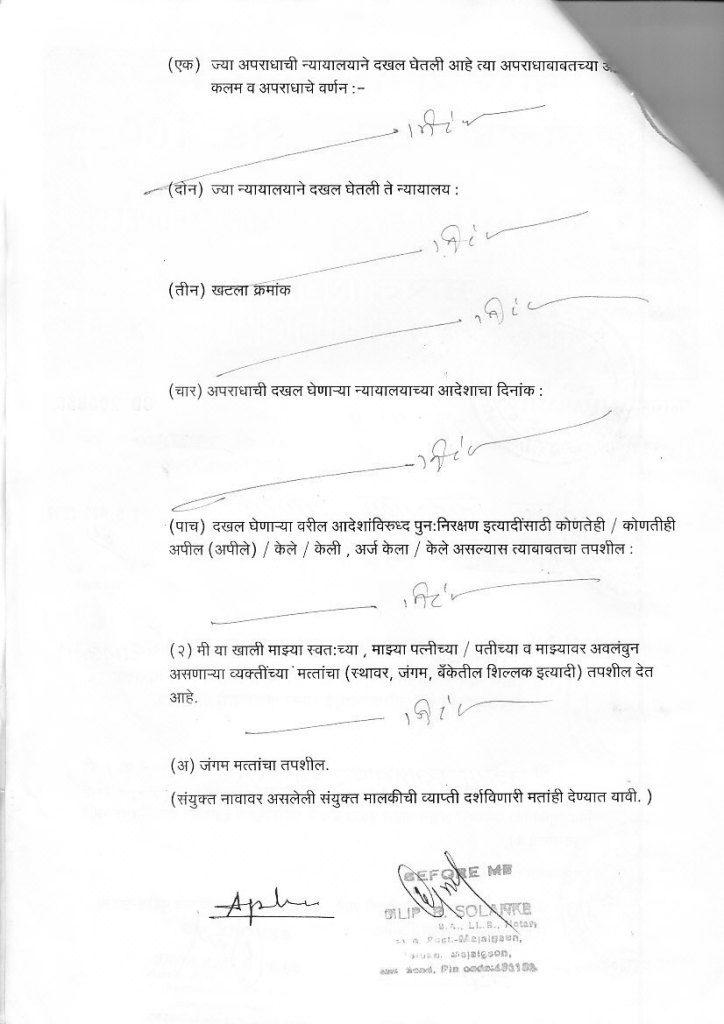 (एक) ज्या अपराधाची न्यायालयाने दखल घेतली आहे त्या अपराधाबाबतच्या
कलम व अपराधाचे वर्णन :-
(दोन) ज्या न्यायालयाने दखल घेतली ते न्यायालय :
(तीन) खटला क्रमांक
(चार) अपराधाची दखल घेणाऱ्या न्यायालयाच्या आदेशाचा दिनांक :
(पाच) दखल घेणाऱ्या वरील आदेशांविरुध्द पुन:निरक्षण इत्यादींसाठी कोणतेही / कोणतीही
अपील (अपीले) / केले / केली , अर्ज केला / केले असल्यास त्याबाबतचा तपशील :
(२) मी या खाली माझ्या स्वत:च्या , माझ्या पत्नीच्या / पतीच्या व माझ्यावर अवलंबुन
असणाऱ्या व्यक्तींच्या मत्तांचा (स्थावर, जंगम, बँकेतील शिल्लक इत्यादी) तपशील देत
आहे.
(अ) जंगम मत्तांचा तपशील.
(संयुक्त नावावर असलेली संयुक्त मालकीची व्याप्ती दर्शविणारी मतांही देण्यात यावी. )
BEFORE ME
DILIP SOLANKE
B.A., LL.B., Notary
Post.-Majalgaon,
Majalgaon,
Pin code:431